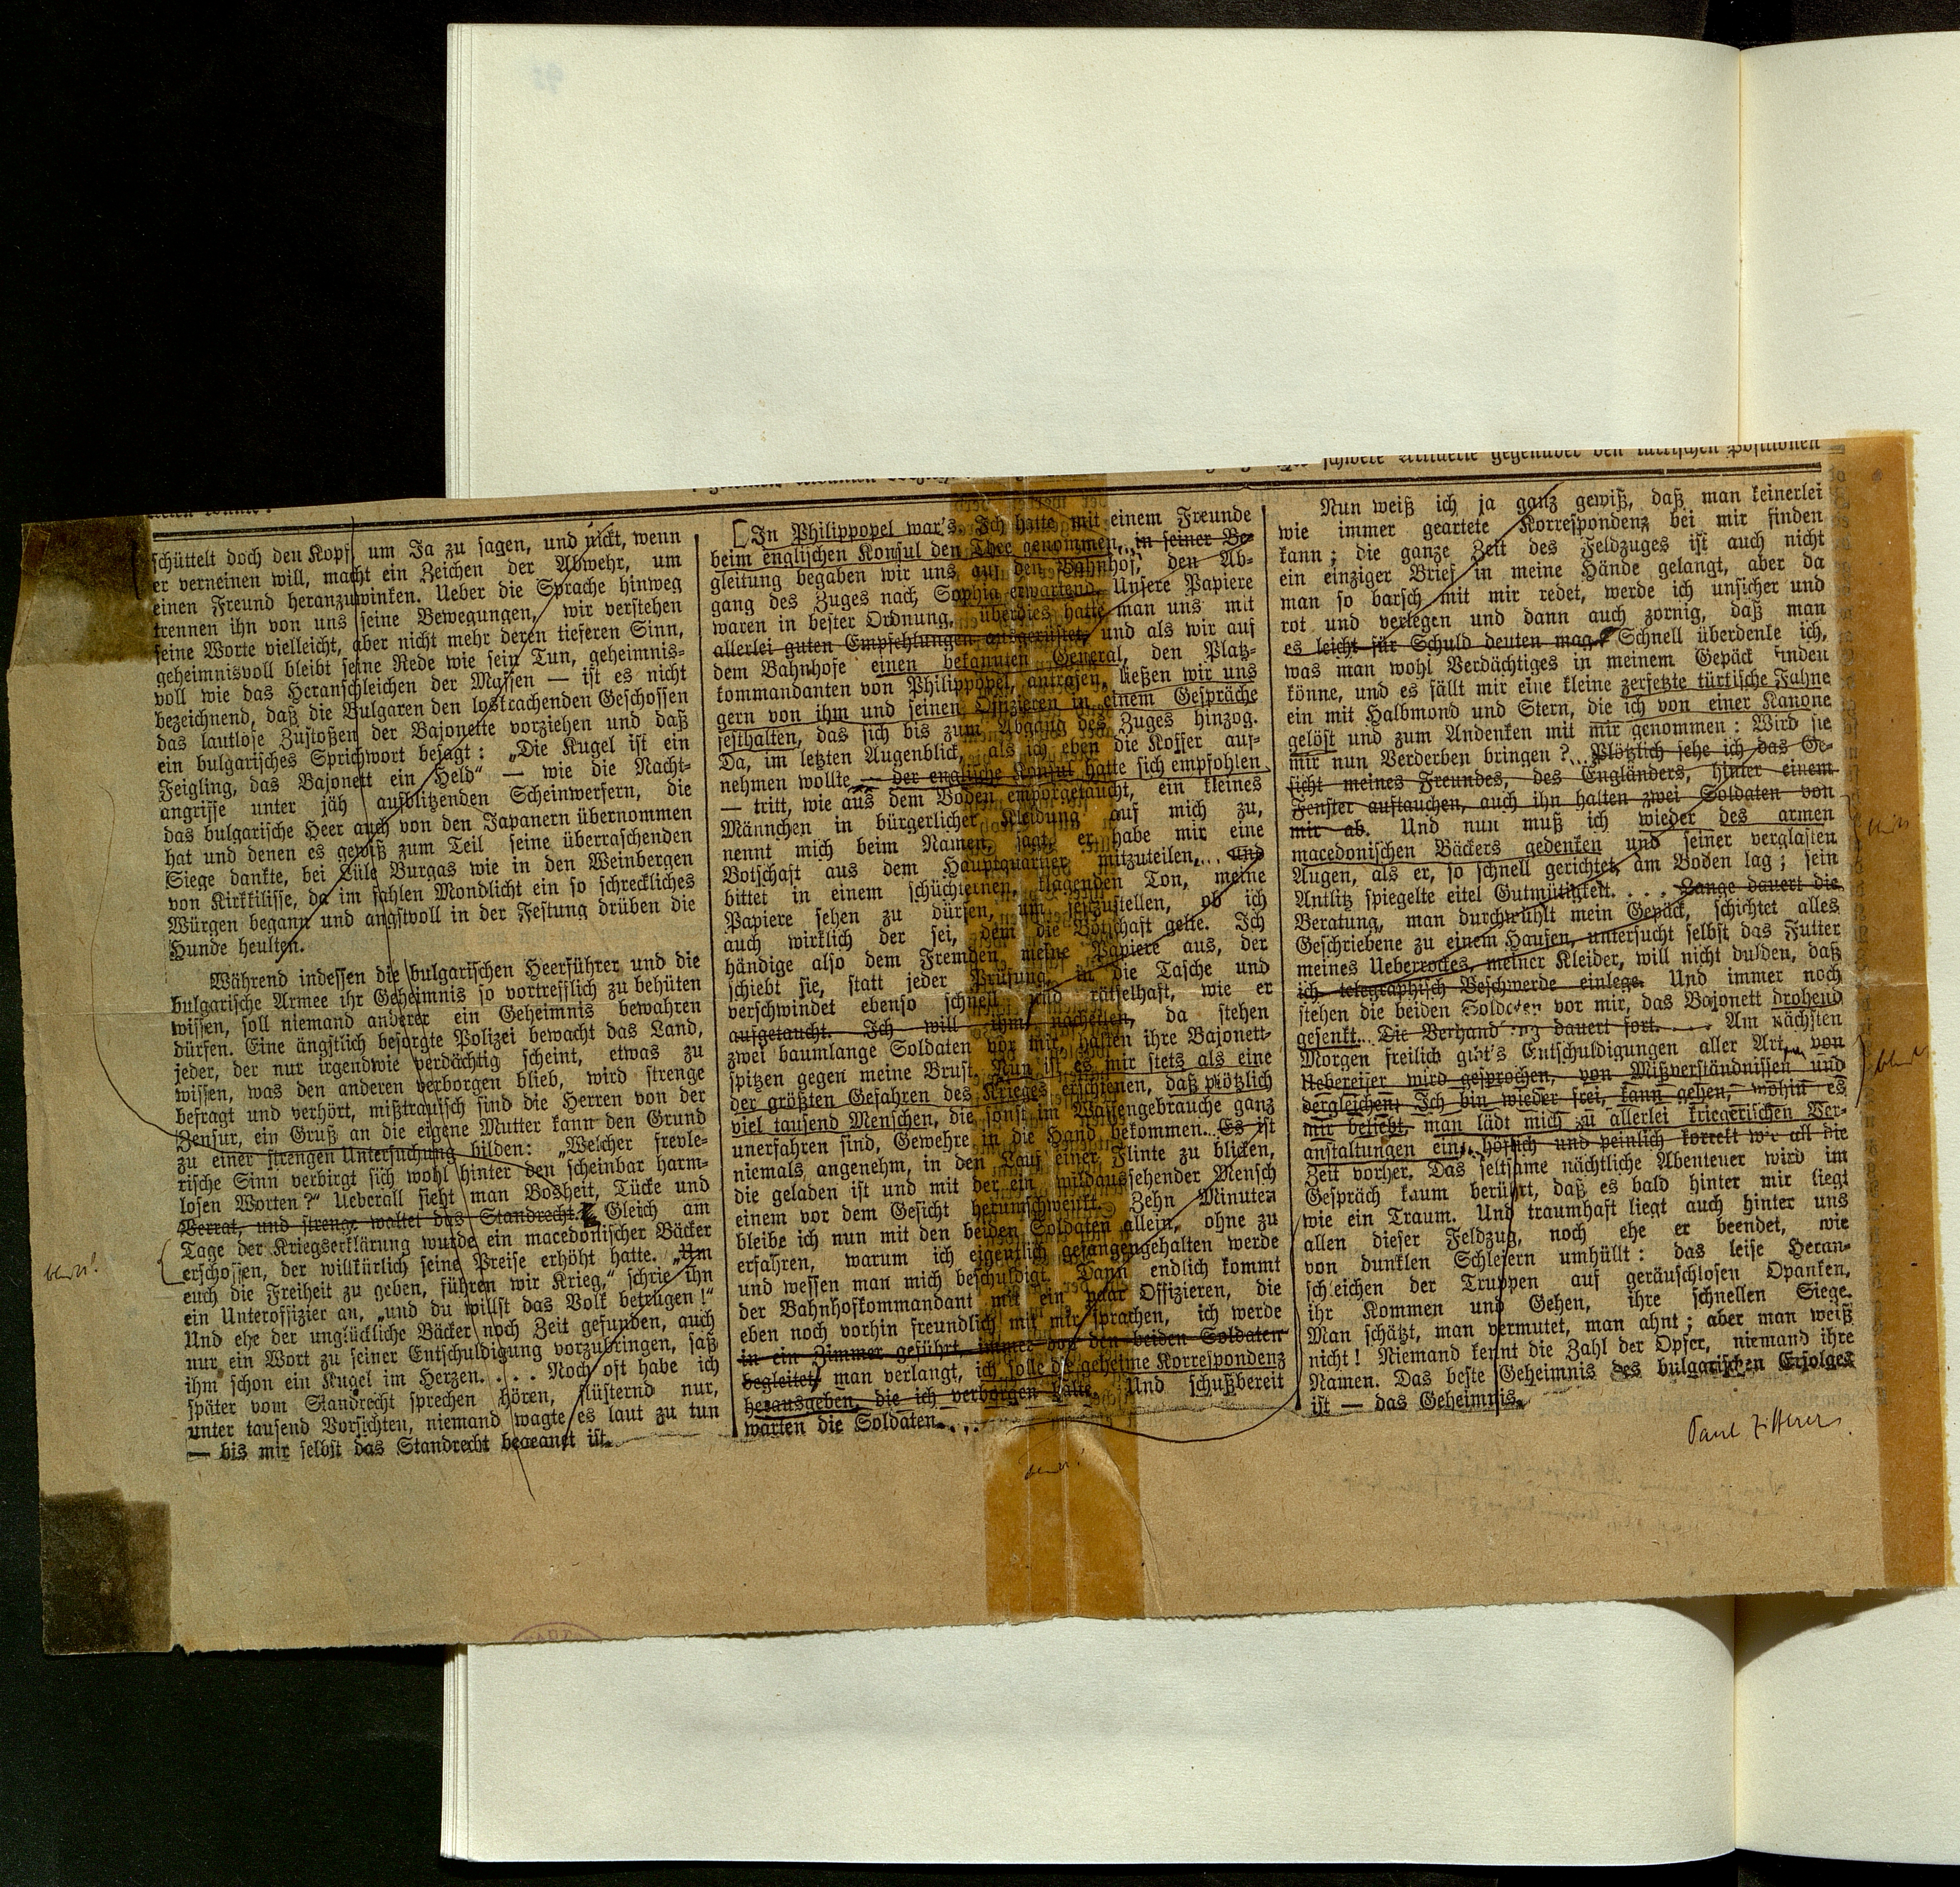 schwere Artillerie gegenüber den türkischen Positionen
schüttelt doch den Kopf, um Ja zu sagen, und nickt, wenn
er verneinen will, macht ein Zeichen der Abwehr, um
einen Freund heranzuwinken. Ueber die Sprache hinweg
trennen ihn von uns seine Bewegungen, wir verstehen
seine Worte vielleicht, aber nicht mehr deren tieferen Sinn,
geheimnisvoll bleibt seine Rede wie sein Tun, geheimnis-
voll wie das Heranschleichen der Massen — ist es nicht
bezeichnend, daß die Bulgaren den loskrachenden Geschossen
das lautlose Zustoßen der Bajonette vorziehen und daß
ein bulgarisches Sprichwort besagt: „Die Kugel ist ein
Feigling, das Bajonett ein Held“ — wie die Nacht-
angriffe unter jäh aufblitzenden Scheinwerfern, die
das bulgarische Heer auch von den Japanern übernommen
hat und denen es gewiß zum Teil seine überraschenden
Siege dankte, bei Lüle Burgas wie in den Weinbergen
von Kirkkilisse, da im fahlen Mondlicht ein so schreckliches
Würgen begann und angstvoll in der Festung drüben die
Hunde heulten.
Während indessen die bulgarischen Heerführer und die
bulgarische Armee ihr Geheimnis so vortrefflich zu behüten
wissen, soll niemand anderer ein Geheimnis bewahren
dürfen. Eine ängstlich besorgte Polizei bewacht das Land,
jeder, der nur irgendwie verdächtig scheint, etwas zu
wissen, was den anderen verborgen blieb, wird strenge
befragt und verhört, mißtrauisch sind die Herren von der
Zensur, ein Gruß an die eigene Mutter kann den Grund
zu einer strengen Untersuchung bilden: „Welcher frevle-
rische Sinn verbirgt sich wohl hinter den scheinbar harm-
losen Worten?“ Ueberall sieht man Bosheit, Tücke und
Verrat, und strenge waltet das Standrecht. Gleich am
Tage der Kriegserklärung wurde ein macedonischer Bäcker
erschossen, der willkürlich seine Preise erhöht hatte. „Um
euch die Freiheit zu geben, führen wir Krieg,“ schrie ihn
ein Unteroffizier an, „und du willst das Volk betrügen!“
Und ehe der unglückliche Bäcker noch Zeit gefunden, auch
nur ein Wort zu seiner Entschuldigung vorzubringen, saß
ihm schon ein Kugel im Herzen. . . . Noch oft habe ich
später vom Standrecht sprechen hören, flüsternd nur,
unter tausend Vorsichten, niemand wagte es laut zu tun
— bis mir selbst das Standrecht begegnet ist.
In Philippopel war's. Ich hatte mit einem Freunde
beim englischen Konsul den Thee genommen, in seiner Be-
gleitung begaben wir uns auf den Bahnhof, den Ab-
gang des Zuges nach Sophia erwartend. Unsere Papiere
waren in bester Ordnung, überdies hatte man uns mit
allerlei guten Empfehlungen ausgerüstet, und als wir auf
dem Bahnhofe einen bekannten General, den Platz-
kommandanten von Philippopel, antrafen, ließen wir uns
gern von ihm und seinen Offizieren in einem Gespräche
festhalten, das sich bis zum Abgang des Zuges hinzog.
Da, im letzten Augenblick, als ich eben die Koffer auf-
nehmen wollte — der englische Konsul hatte sich empfohlen
— tritt, wie aus dem Boden emporgetaucht, ein kleines
Männchen in bürgerlicher Kleidung auf mich zu,
nennt mich beim Namen, sagt, er habe mir eine
Botschaft aus dem Hauptquartier mitzuteilen, . . . und
bittet in einem schüchternen, klagenden Ton, meine
Papiere sehen zu dürfen, um festzustellen, ob ich
auch wirklich der sei, dem die Botschaft gelte. Ich
händige also dem Fremden meine Papiere aus, der
schiebt sie, statt jeder Prüfung, in die Tasche und
verschwindet ebenso schnell und rätselhaft, wie er
aufgetaucht. Ich will ihm nacheilen, da stehen
zwei baumlange Soldaten vor mir, halten ihre Bajonett-
spitzen gegen meine Brust. Nun ist es mir stets als eine
der größten Gefahren des Krieges erschienen, daß plötzlich
viel tausend Menschen, die sonst im Waffengebrauche ganz
unerfahren sind, Gewehre in die Hand bekommen... Es ist
niemals angenehm, in den Lauf einer Flinte zu blicken,
die geladen ist und mit der ein wildaussehender Mensch
einem vor dem Gesicht herumschwenkt. Zehn Minuten
bleibe ich nun mit den beiden Soldaten allein, ohne zu
erfahren, warum ich eigentlich gefangengehalten werde
und wessen man mich beschuldigt. Dann endlich kommt
der Bahnhofkommandant mit ein paar Offizieren, die
eben noch vorhin freundlich mit mir sprachen, ich werde
in ein Zimmer geführt, immer von den beiden Soldaten
begleitet, man verlangt, ich solle die geheime Korrespondenz
herausgeben, die ich verborgen halte. Und schußbereit
warten die Soldaten. . . .
Nun weiß ich ja ganz gewiß, daß man keinerlei
wie immer geartete Korrespondenz bei mir finden
kann; die ganze Zeit des Feldzuges ist auch nicht
ein einziger Brief in meine Hände gelangt, aber da
man so barsch mit mir redet, werde ich unsicher und
rot und verlegen und dann auch zornig, daß man
es leicht für Schuld deuten mag. Schnell überdenke ich,
was man wohl Verdächtiges in meinem Gepäck finden
könne, und es fällt mir eine kleine zerfetzte türkische Fahne
ein mit Halbmond und Stern, die ich von einer Kanone
gelöst und zum Andenken mit mir genommen: Wird sie
mir nun Verderben bringen?... Plötzlich sehe ich das Ge-
sicht meines Freundes, des Engländers, hinter einem
Fenster auftauchen, auch ihn halten zwei Soldaten von
mir ab. Und nun muß ich wieder des armen
macedonischen Bäckers gedenken und seiner verglasten
Augen, als er, so schnell gerichtet, am Boden lag; sein
Antlitz spiegelte eitel Gutmütigkeit. . . . Lange dauert die
Beratung, man durchwühlt mein Gepäck, schichtet alles
Geschriebene zu einem Haufen, untersucht selbst das Futter
meines Ueberrockes, meiner Kleider, will nicht dulden, daß
ich telegraphisch Beschwerde einlege. Und immer noch
stehen die beiden Soldaten vor mir, das Bajonett drohend
gesenkt... Die Verhandlung dauert fort. . . . Am nächsten
Morgen freilich gibt's Entschuldigungen aller Art, von
Uebereifer wird gesprochen, von Mißverständnissen und
dergleichen; Ich bin wieder frei, kann gehen, wohin es
mir beliebt, man lädt mich zu allerlei kriegerischen Ver-
anstaltungen ein, höflich und peinlich korrekt wie all die
Zeit vorher. Das seltsame nächtliche Abenteuer wird im
Gespräch kaum berührt, daß es bald hinter mir liegt
wie ein Traum. Und traumhaft liegt auch hinter uns
allen dieser Feldzug, noch ehe er beendet, wie
von dunklen Schleiern umhüllt: das leise Heran-
schleichen der Truppen auf geräuschlosen Opanken,
ihr Kommen und Gehen, ihre schnellen Siege.
Man schätzt, man vermutet, man ahnt; aber man weiß
nicht! Niemand kennt die Zahl der Opfer, niemand ihre
Namen. Das beste Geheimnis des bulgarischen Erfolges
ist — das Geheimnis.
Paul Zifferer.